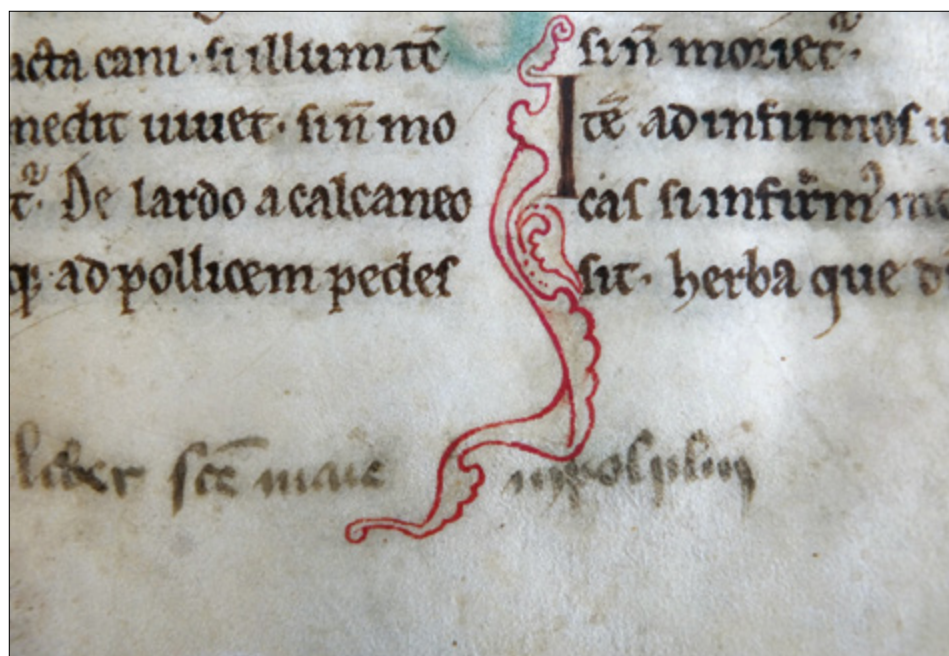 acta cani · si illum tē
nedit uiuet · si n̄ mo
De lardo a calcaneo
ad pollicem pedes
si n̄ moriet᷑ ·
Itē ad infirmos
cas si infirm᷒
sit · herba que
liber scē marie